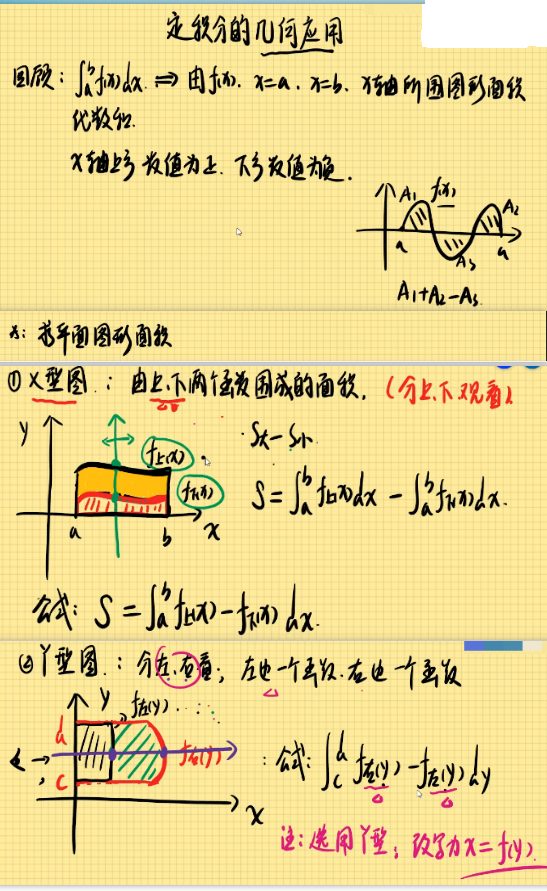 定积分的几何应用
回顾：∫ₐᵇ f(x)dx. ⇒ 由f(x), x=a, x=b, x轴所围图形面积
代数和.
x轴上方数值为正. 下方数值为负.
A₁ f(x) A₂
a a
A₃
A₁+A₂-A₃
求平面图形面积
① X型图：由上、下两个函数围成的面积.（分上、下观看）
y
f上(x) S大-S小
f下(x) S=∫ₐᵇ f上(x)dx - ∫ₐᵇ f下(x)dx.
a b x
公式：S=∫ₐᵇ f上(x)-f下(x) dx.
② Y型图：分左、右看；左边一个函数. 右边一个函数
y f左(y)
d f右(y)
c
x
注：选用Y型，改写为x=f(y).